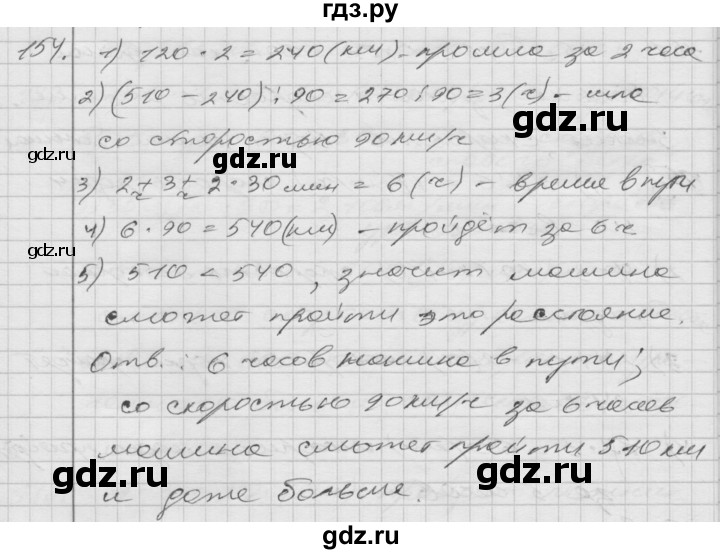 гдз.ру
154. 1) 120 · 2 = 240 (км) - прошла за 2 часа
2) (510 - 240) : 90 = 270 : 90 = 3 (ч) - шла
со скоростью 90 км/ч
gdz.ru gdz.ru gdz.ru
3) 2 ч + 3 ч + 2 · 30 мин = 6 (ч) - время в пути
4) 6 · 90 = 540 (км) - пройдёт за 6 ч
gdz.ru gdz.ru gdz.ru
5) 510 < 540, значит машина
сможет пройти это расстояние.
gdz.ru gdz.ru
Отв.: 6 часов машина в пути;
со скоростью 90 км/ч за 6 часов
gdz.ru gdz.ru gdz.ru
машина сможет пройти 510 км
и даже больше.
gdz.ru gdz.ru
gdz.ru